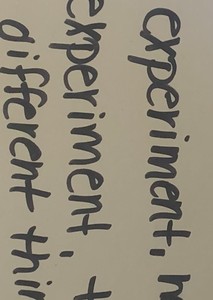 experiment,
experiment,
different